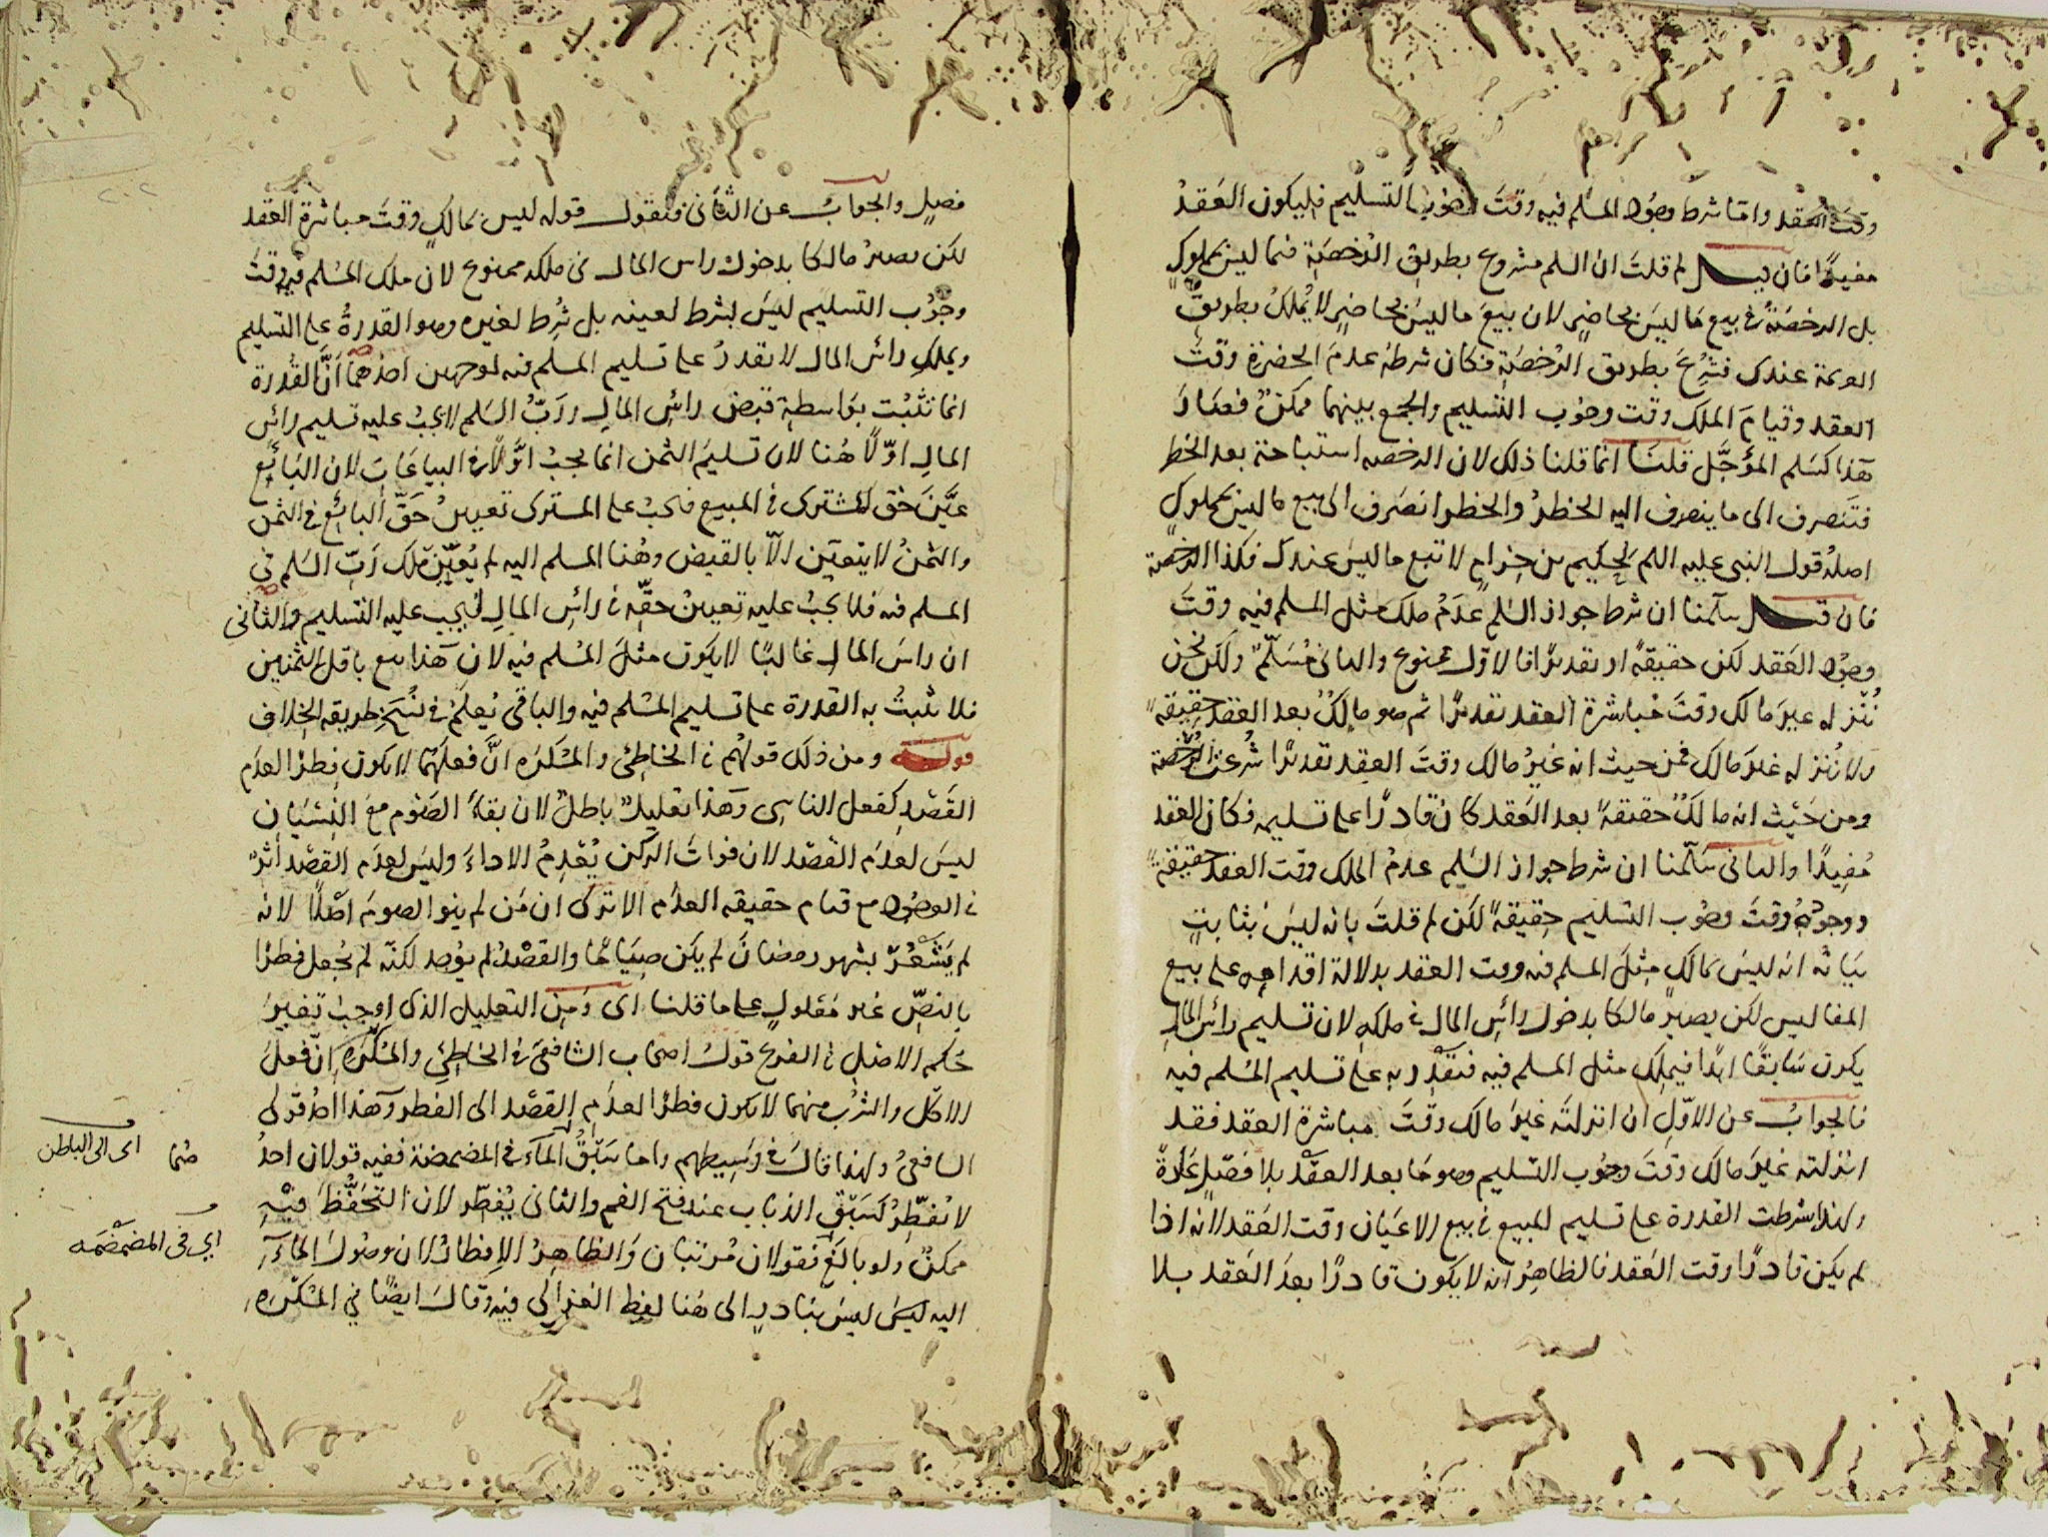 وقت العقد واما شرط وجود المسلم فيه وقتَ وجوب التسليم فليكون العَقدُ
مفيدًا فان قيل لم قلتَ ان السلم مشروع بطريق الرُخصَة فيما ليس بمملوك
بل الرخصَةُ في بيع مَا ليسَ بحاضرٍ لان بيعَ ما ليسَ بحاضرٍ لا يُملكُ بطريق
العزيمة عندك فشُرِعَ بطريق الرُخصَة فكان شرطهُ عدمَ الحضرة وقتَ
العقد وقيامَ الملك وقت وجُوب التسليم والجمع بينهما ممكنٌ فصَارَ
هَذا كسَلم المؤجَّل قلنَا انما قلنا ذلك لان الرخصه استباحة بعد الخطر
فتَنصرف الى ما ينصرف اليه الخطرُ والخطر انصَرف الى بيع ما ليس بمملوكٍ
اصلهُ قول النبى عليه السلم لحكيم بن حِزامٍ لا تبع ما ليس عندك فكذا الرخصة
فان قيل سلّمنا ان شرط جواز السَلم عَدَمُ ملك مثل المسلم فيه وقتَ
وجُود العَقد لكن حقيقةً او تقديرًا فالاوّل ممنوع والثانى مُسَلّمٌ ولكن نحن
نُنزله غيرَ مالك وقتَ مُباشرة العقد تقديرًا ثم هو مالكٌ بعد العقد حقيقةً
ولا نُنزله غيرَ مَالك فمن حيث انه غيرُ مالك وقتَ العقِد تقديرًا شُرعت الرُخصة
ومن حَيْث انه مالكٌ حقيقةً بعد العَقد كان قادرًا على تسليمه فكان العقد
مُفِيدًا والثانى سَلّمنا ان شرط جواز السَلم عدمُ الملك وقت العقد حقيقةً
ووجودُهُ وقتَ وجُوب التسليم حقيقةً لكن لم قلتَ بانه ليسَ بثابتٍ
بيَانُه انه ليسَ بمالك مِثلَ المسلم فيه وقت العقد بدلالة اقدامِه على بيع
المفاليس لكن يصيرُ مَالكا بدخول رأسِ المال في ملكهِ لان تسليم رأسَ المَالِ
يكون سَابقًا ابدًا فيملك مثل المسلم فيه فتقدَر به على تسليم المُسلم فيه
فالجوابُ عن الاوّلِ ان انزلتَه غيرَ مَالك وقتَ مباشرة العقد فقد
انزلته غيرَ مَالك وقتَ وجُوب التسليم وهو مَا بعد العقد بلا فصْلٍ عَادةً
ولهذا شرطت القدرة على تسليم المبيع في بيع الاعيَان وقت العَقد لانه اذا
لم يكن قادرًا وقت العَقد فالظاهِرُ انه لا يكون قادرًا بعدَ العَقد بلا
فصلٍ والجوابُ عن الثانى فنقول قوله ليس بمالكٍ وقتَ مباشرة العقد
لكن يصيرُ مالكا بدخول راس المال في ملكه ممنوع لان ملك المسلم فيه وقتَ
وجُوب التسليم ليسَ بشرط لعينه بل شُرِط لغيره وهو القدرةُ على التسليم
وبملكِ رأسِ المال لا يقدرُ على تسليم المسلم فيه لوجهين احدُهمَا انَّ القُدرة
انما تثبُت بوَاسطةِ قبض راسِ المالِ وربُّ السَلم لا يجبُ عليه تسليم رأسِ
المالِ اوّلًا هُنا لان تسليمَ الثمن انما يجبُ اوَّلًا في البياعَاتِ لان البَائع
عيَّنَ حَقّ المُشترى في المبيع فيجبُ على المشترى تعيينُ حَقِّ البائع في الثمن
والثمنُ لا يتعيَّن الاّ بالقبض وهُنا المسلم اليه لم يُعيِّن ملك رَبِّ السَلم في
المسلم فيه فلا يجبُ عليه تعيينُ حقِّه في رأسِ المالِ ليجب عليه التسليم والثانى
ان راسَ المالِ غالبًا لا يكون مثلَ المُسلم فيه لان هَذا بيع باقل الثمنين
فلا تثبتُ به القدرة على تسليم المُسلم فيه والباقى يُعلَمُ في نُسَخ طريقه الخلاف
قوله ومن ذلك قولهُم في الخاطِئ والمُكرَه انَّ فعلَهُما لا يكون فِطرًا لعدَم
القَصْد كفعل الناسى وَهذا تعليلٌ باطلٌ لان بقاءَ الصَوم مَعَ النِسْيَانِ
ليسَ لعدَم القصْد لان فواتَ الركن يُعْدِمُ الاداءَ وليسَ لعدَم القصْد اثرٌ
في الوجُود مع قيام حقيقة العدَم الا ترى ان مَن لم ينو الصومَ اصْلًا لانه
لم يَشعُرْ بشهر رمضانَ لم يكن صِيَامًا والقصْدُ لم يوُجد لكنّه لم يُجعل فِطرًا
بالنصِّ غير مَعْلولٍ على ما قلنا اى وَمِنَ التعليل الذى اوجبَ تغيرَ
حُكم الاصْل في الفرع قولُ اصحاب الشافعى في الخاطِئِ والمُكرَه انّ فعلَ
الاكل والشرْبِ منهما لا يكون فطرًا لعدَم القصْد الى الفطر وَهذا احد قولى
الشافعىُ ولهذا قالَ في وَسِيطهم واما سَبْقُ المآءَ في المضمضة ففيه قولان احدُ
لا يُفطِّرُ كسَبْقِ الذباب عند فتح الفم والثانى يُفطِّر لان التحَفُّظَ فيهِ
ممكنٌ ولو بالَغَ فقولان مُرتبان وَالظاهِرُ الافطارُ لان وصُولَ المآءِ
اليه ليسَ ليسَ بنادرٍ الى هُنا لفظ الغزالى فيه وقالَ ايضًا في المُكرَهِ
هُما
اى الى الباطن
اي في المضمضَه